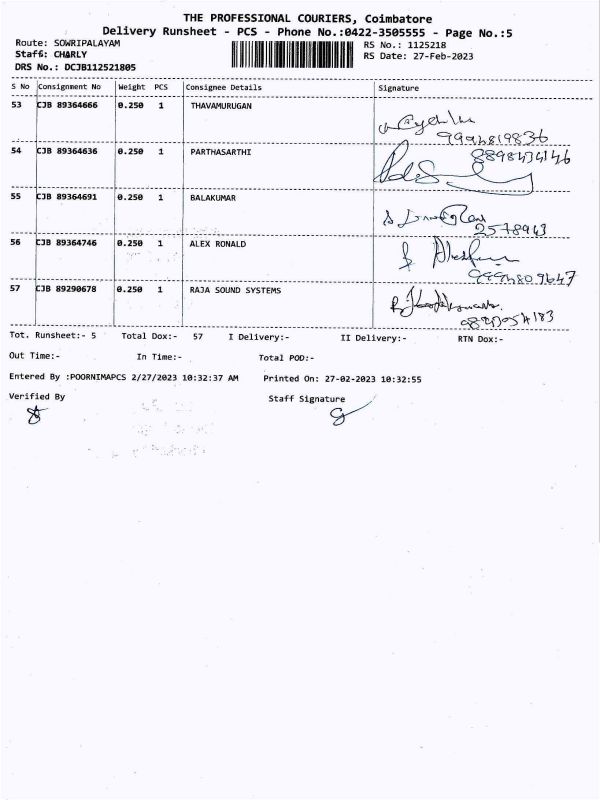 THE PROFESSIONAL COURIERS, Coimbatore
Delivery Runsheet - PCS - Phone No.:0422-3505555 - Page No.:5
Route: SOWRIPALAYAM
Staff: CHARLY
DRS No.: DCJB112521805
RS No.: 1125218
RS Date: 27-Feb-2023
S No Consignment No Weight PCS Consignee Details Signature
53 CJB 89364666 0.250 1 THAVAMURUGAN
9994819836
54 CJB 89364636 0.250 1 PARTHASARTHI
8898434146
55 CJB 89364691 0.250 1 BALAKUMAR
2578943
56 CJB 89364746 0.250 1 ALEX RONALD
9994809647
57 CJB 89290678 0.250 1 RAJA SOUND SYSTEMS
Tot. Runsheet:- 5 Total Dox:- 57 I Delivery:- II Delivery:- RTN Dox:-
Out Time:- In Time:- Total POD:-
Entered By :POORNIMAPCS 2/27/2023 10:32:37 AM Printed On: 27-02-2023 10:32:55
Verified By Staff Signature